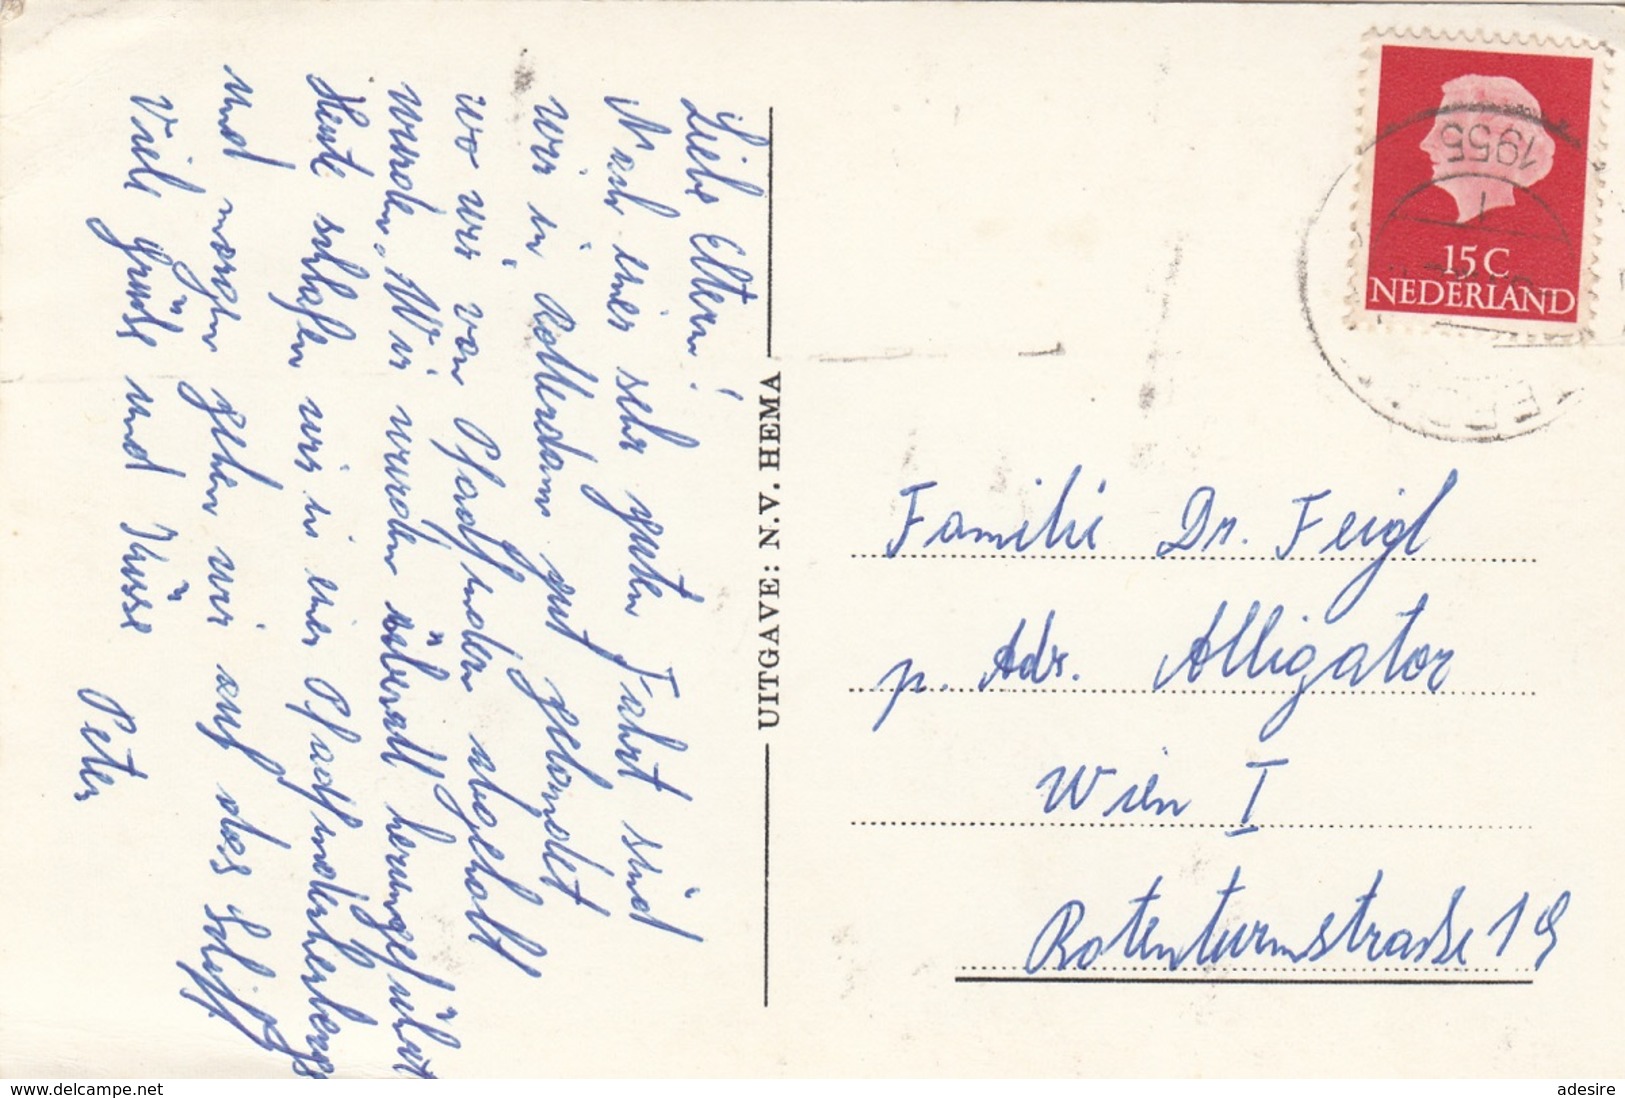 Liebe Eltern!
Nach einer sehr guten Fahrt sind
wir in Rotterdam gut gelandet
wo wir von Pfadfindern abgeholt
wurden. Wir wurden überall herumgeführt
Heute schlafen wir in einer Pfadfinderherberge
und morgen gehen wir auf das Schiff.
Viele Grüße und Küsse
Peter
UITGAVE: N.V. HEMA
1955
15 C
NEDERLAND
Familie Dr. Feigl
p. Adr. Alligator
Wien I
Rotenturmstrasse 19
www.delcampe.net
adesire